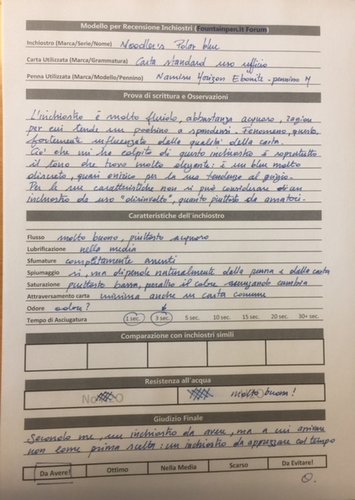 Modello per Recensione Inchiostri (Fountainpen.it Forum)
Inchiostro (Marca/Serie/Nome) Noodler's Polar blu
Carta Utilizzata (Marca/Grammatura) Carta standard uso ufficio
Penna Utilizzata (Marca/Modello/Pennino) Namisu Horizon Ebonite - pennino M
Prova di scrittura e Osservazioni
L'inchiostro è molto fluido, abbastanza acquoso, ragion
per cui tende un pochino a spandersi. Fenomeno, questo,
fortemente influenzato dalla qualità della carta.
Ciò che mi ha colpito di questo inchiostro è soprattutto
il tono che trovo molto elegante: è un blu molto
discreto, quasi onirico per la sua tendenza al grigio.
Per le sue caratteristiche non si può considerare di un
inchiostro da uso "disinvolto", quanto piuttosto da amatori.
Caratteristiche dell'inchiostro
Flusso molto buono, piuttosto acquoso
Lubrificazione nella media
Sfumature completamente assenti
Spiumaggio sì, ma dipende naturalmente dalla penna e dalla carta
Saturazione piuttosto bassa, peraltro il colore asciugando cambia
Attraversamento carta minima anche in carta comune
Odore odore?
Tempo di Asciugatura 1 sec. 3 sec. 5 sec. 10 sec. 15 sec. 20 sec. 30+ sec.
Comparazione con inchiostri simili
Resistenza all'acqua
molto buona!
Giudizio Finale
Secondo me, un inchiostro da avere, ma a cui arrivare
non come prima scelta: un inchiostro da apprezzare col tempo
Da Avere! Ottimo Nella Media Scarso Da Evitare!